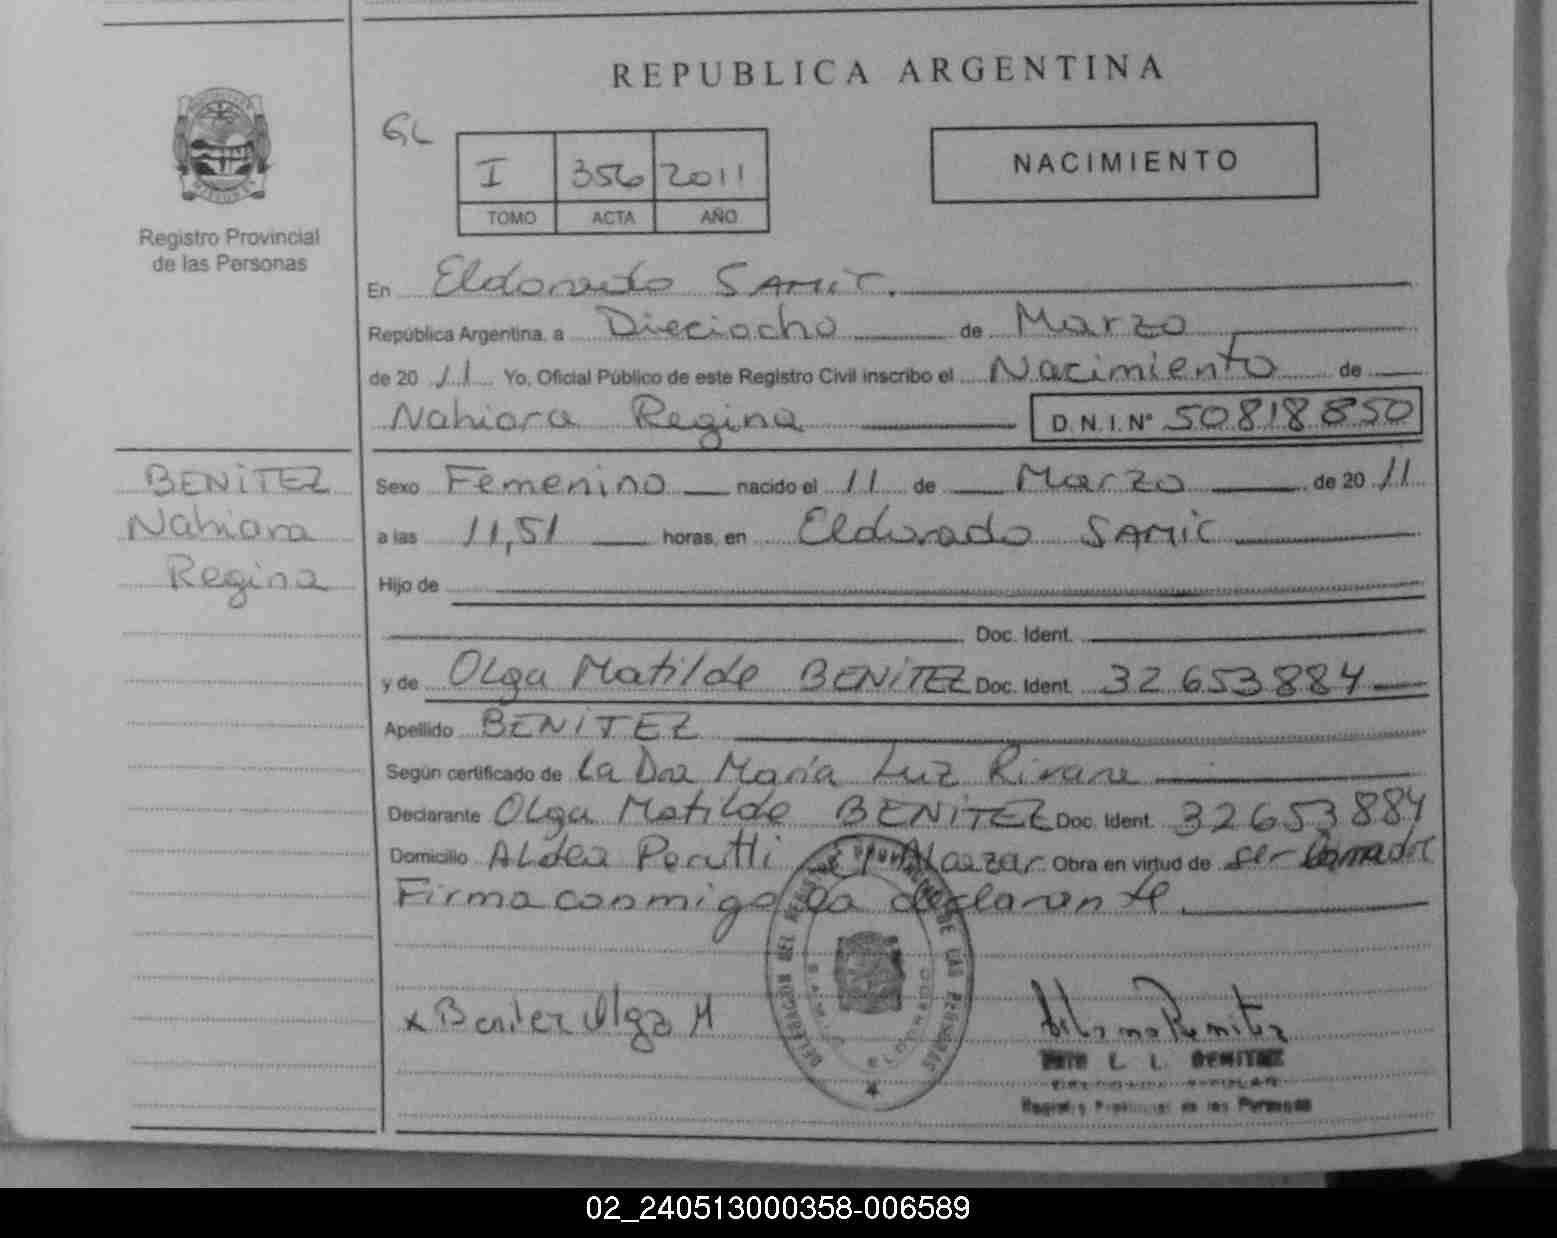 REPUBLICA ARGENTINA
GL
I 356 2011
TOMO ACTA AÑO
NACIMIENTO
Registro Provincial
de las Personas
En Eldorado SAMIC.
República Argentina, a Dieciocho de Marzo
de 20 11 Yo, Oficial Público de este Registro Civil inscribo el Nacimiento de
Nahiara Regina D.N.I.Nº 50818850
BENITEZ
Nahiara
Regina
Sexo Femenino nacido el 11 de Marzo de 20 11
a las 11,51 horas, en Eldorado SAMIC
Hijo de
Doc. Ident.
y de Olga Matilde BENITEZ Doc. Ident. 32653884
Apellido BENITEZ
Según certificado de La Dra Maria Luz
Declarante Olga Matilde BENITEZ Doc. Ident. 32653884
Domicilio Aldea Perutti Alcazar Obra en virtud de ser la madre
Firma conmigo la declarante
x Benitez Olga M
DELEGACION DEL REGISTRO DE LAS PERSONAS
S.A.M.I.C. ELDORADO
L. L. BENITEZ
Registro Provincial de las Personas
02_240513000358-006589